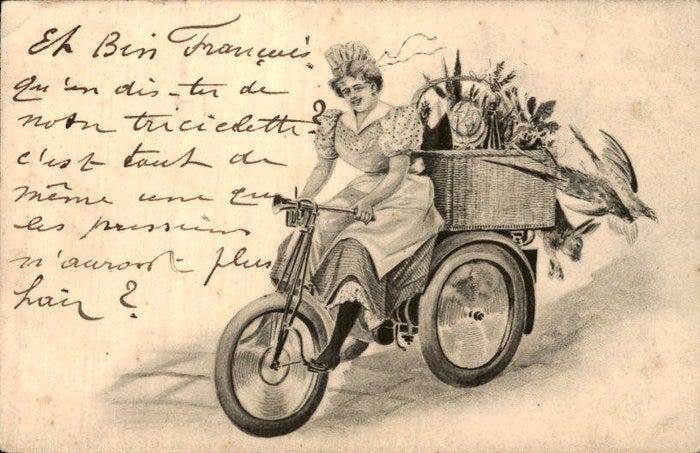 Eh Bin François
qu'en dis-tu de
notre triciclette?
c'est tout de
même une que
les prussiens
n'auront plus
hein?